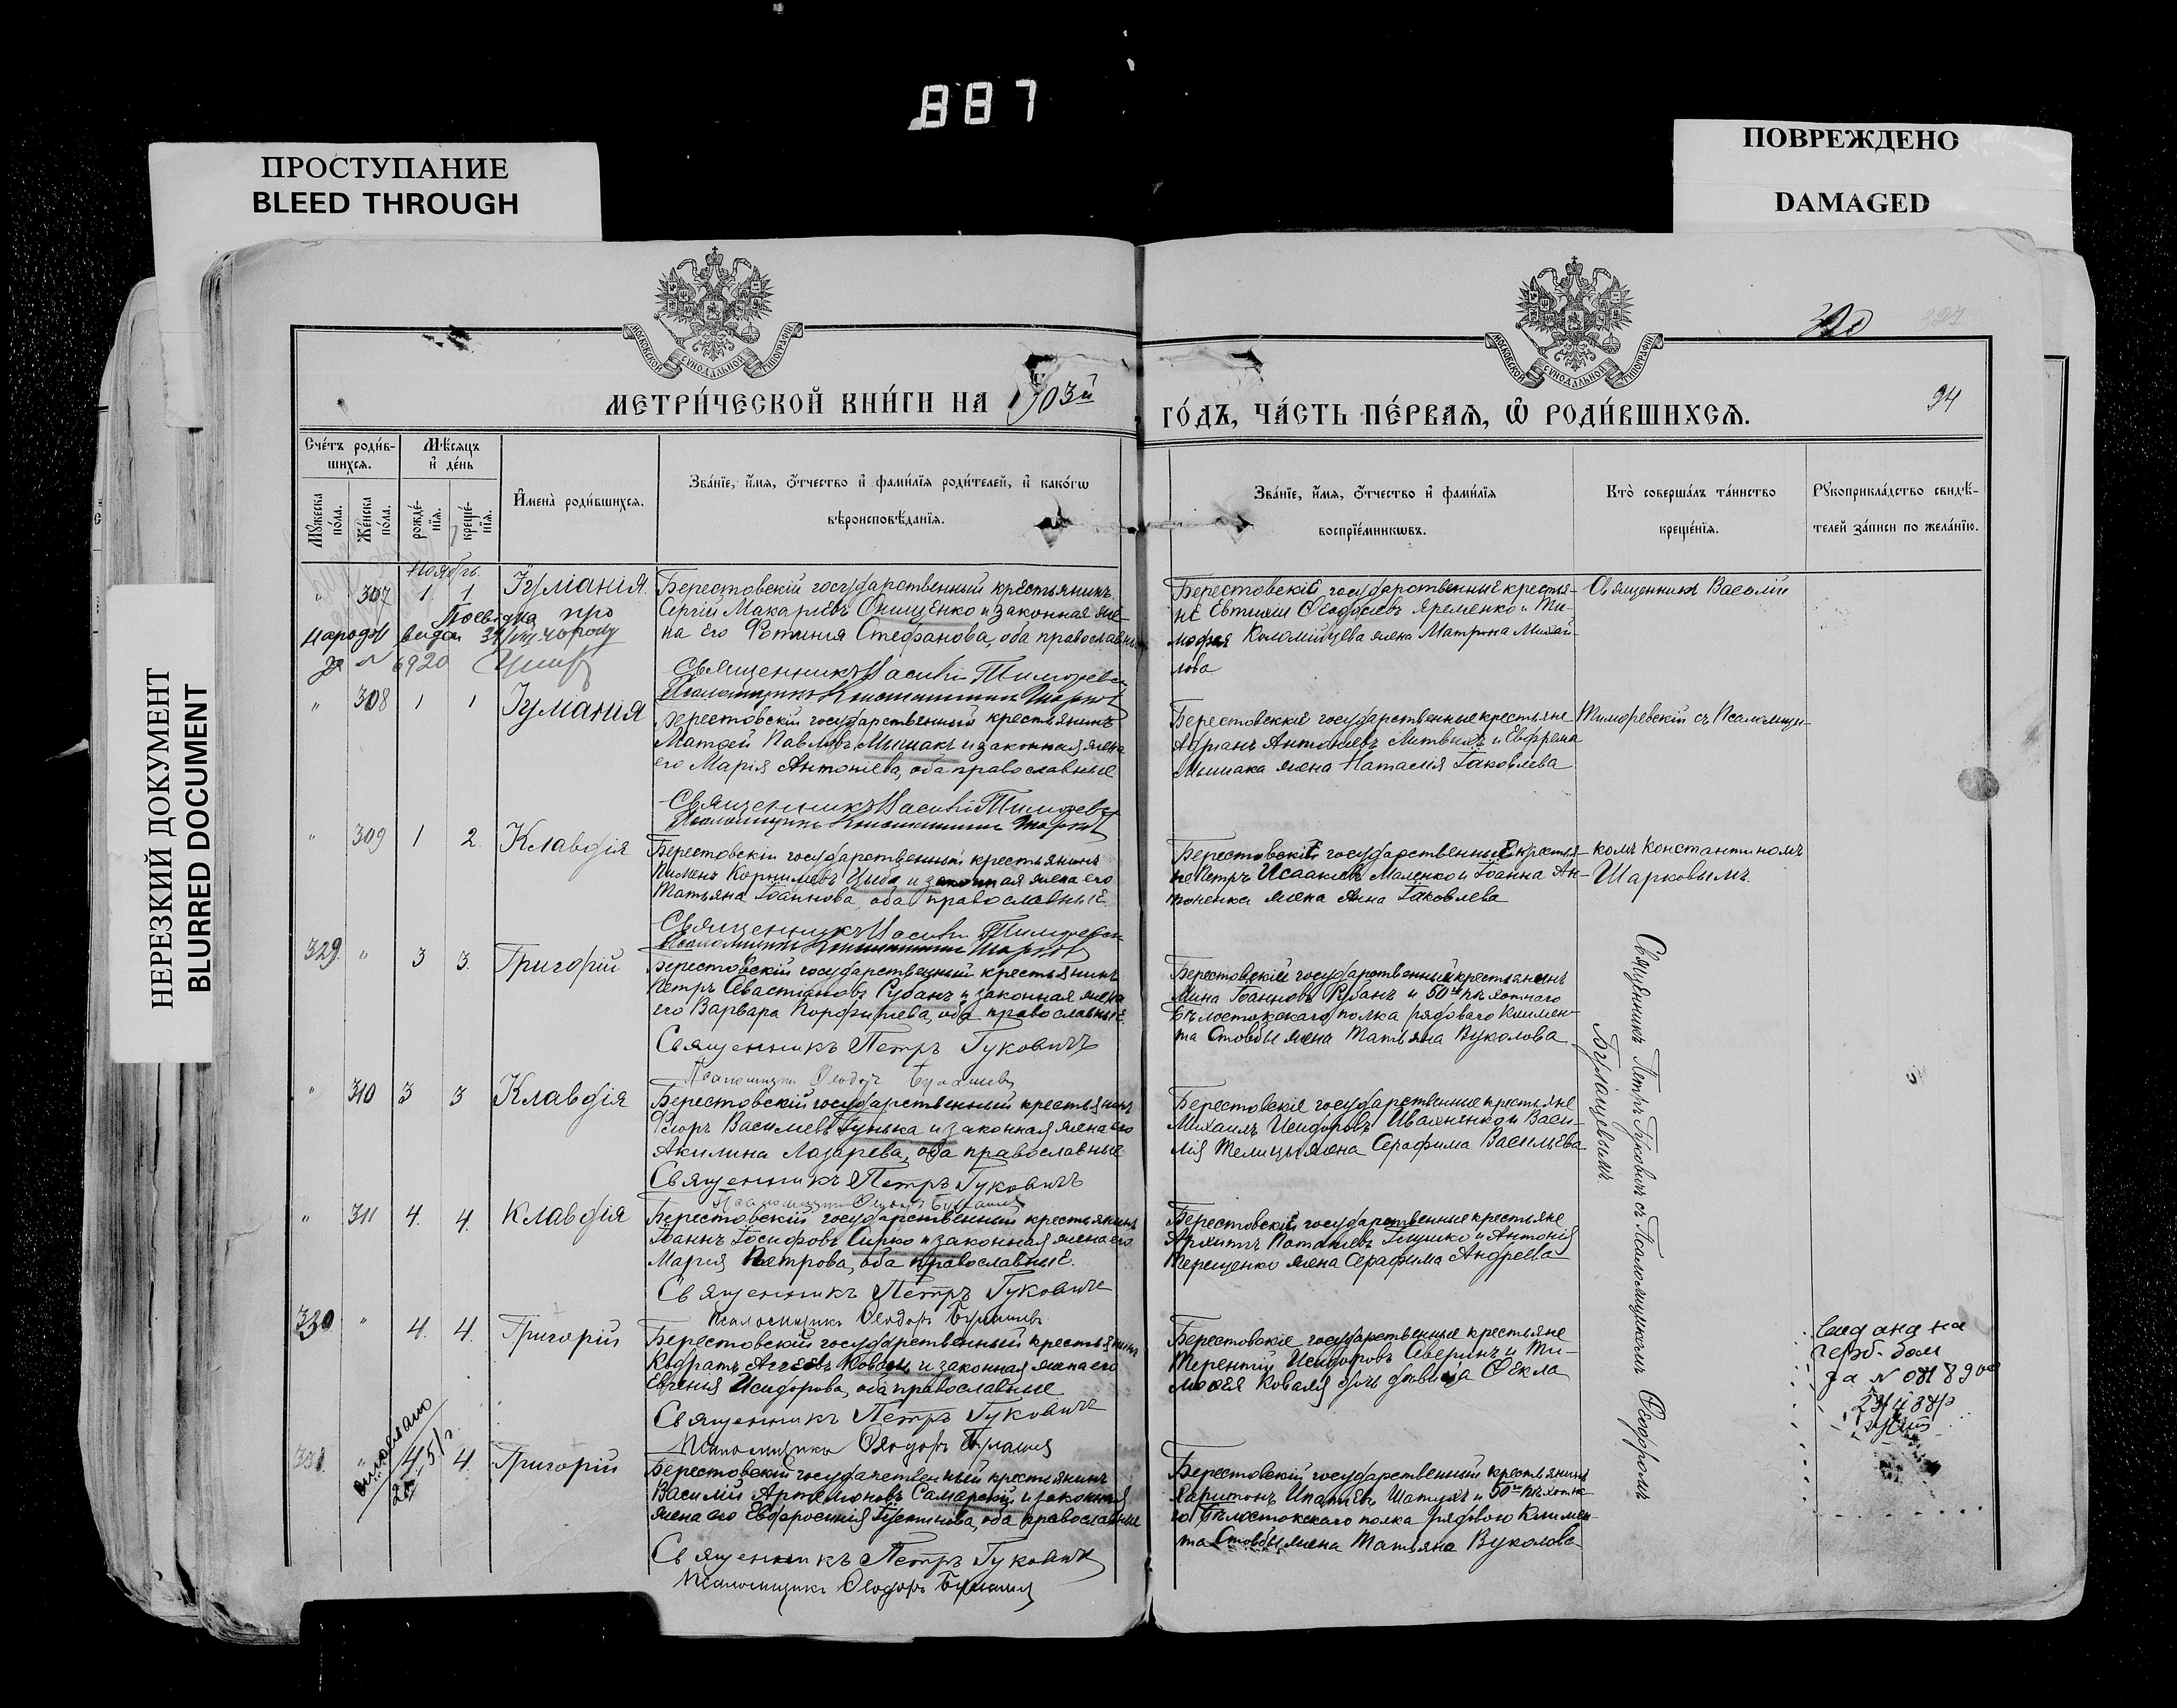 887
ПРОСТУПАНИЕ
BLEED THROUGH
ПОВРЕЖДЕНО
DAMAGED
НЕРЕЗКИЙ ДОКУМЕНТ
BLURRED DOCUMENT
МОСКОВСКОЙ СѴНОДАЛЬНОЙ ТИПОГРАФІИ
МОСКОВСКОЙ СѴНОДАЛЬНОЙ ТИПОГРАФІИ
94
МЕТРИ́ЧЕСКОЙ КНИ́ГИ НА 1903й
ГО́ДЪ, ЧА́СТЬ ПЕ́РВАЯ, Ѿ РОДИ́ВШИХСЯ.
Сче́тъ роди́в-
шихся.
Мѣ́сяцъ
и҆ де́нь
Мꙋ́жеска по́ла.
Же́нска по́ла.
рожде́-нїя.
креще́-нїя.
И҆мена̀ роди́вшихся.
Зва́нїе, и҆́мя, ѻ҆́тчество и҆ фами́лїя роди́телей, и҆ како́гѡ
вѣроисповѣ́данїя.
Зва́нїе, и҆́мя, ѻ҆́тчество и҆ фами́лїя
воспрїе́мникѡвъ.
Кто̀ соверша́лъ та́инство
креще́нїя.
Рꙋкоприкла́дство свидѣ́-
телей за́писи по жела́нїю.
Ноябрь.
" 307 1 1 Іуліанія
Берестовскій государственный крестьянинъ
Сергій Макаріевъ Онищенко и законная же-
на его Фотинія Стефанова, оба православные
Священникъ Василій Тиморевск
Псаломщикъ Константинъ Шарков
Берестовскіе государственные крестья-
не Евтихій Феодосіевъ Яременко и Ти-
мофея Коломійцева жена Матрона Михай-
лова
Священникъ Василій
про
народж
за № 6920
" 308 1 1 Іуліания
Берестовскій государственный крестьянинъ
Матфей Павловъ Мышакъ и законная жена
его Марія Антоніева, оба православные
Священникъ Василій Тиморевс
Псаломщикъ Константинъ Шарков
Берестовскіе государственные крестьяне
Адріанъ Антоніевъ Литвинъ и Евфрема
Мышака жена Наталія Іаковлева
Тиморевскій съ Псаломщи-
" 309 1 2. Клавдія
Берестовскій государственный крестьянинъ
Пименъ Корниліевъ Цыба и законная жена его
Татьяна Іоаннова, оба православные.
Священникъ Василій Тиморевск
Псаломщикъ Константинъ Шарков
Берестовскіе государственные крестья-
не Петръ Исаакіевъ Маленко и Іоанна Ан-
тоненка жена Анна Іаковлева
комъ Константиномъ
Шарковымъ.
329. " 3 3. Григорій
Берестовскій государственный крестьянинъ
Петръ Севастіановъ Рубанъ и законная жена
его Варвара Порфиріева, оба православные.
Священникъ Петръ Гуковичъ
Псаломщикъ Феодоръ
Берестовскій государственный крестьянинъ
Мина Іоанновъ Рубанъ и 50го пѣхотнаго
Бѣлостокскаго полка рядового Климен-
та Стовбы жена Татьяна Вуколова
Священникъ Петръ Гуковичъ съ Псаломщикомъ Феодоромъ
" 310 3 3 Клавдія
Берестовскій государственный крестьянинъ
Флоръ Василіевъ Гунька и законная жена его
Акилина Лазарева, оба православные
Священникъ Петръ Гуковичъ
Псаломщикъ Феодоръ
Берестовскіе государственные крестьяне
Михаилъ Исидоровъ Иваненко и Васи-
лія Телицы жена Серафима Васильева
" 311 4. 4. Клавдія
Берестовскій государственный крестьянинъ
Іоаннъ Іосифовъ Сирко и законная жена его
Марія Петрова, оба православные.
Священникъ Петръ Гуковичъ
Псаломщикъ Феодоръ
Берестовскіе государственные крестьяне
Архиппъ Потапіевъ и Антонія
Терещенко жена Серафима Андреева
330 " 4. 4. Григорій
Берестовскій государственный крестьянинъ
Кодратъ Аггеевъ Коваль и законная жена его
Евгенія Исидорова, оба православные
Священникъ Петръ Гуковичъ
Псаломщикъ Феодоръ
Берестовскіе государственные крестьяне
Терентій Исидоровъ Северинъ и Ти-
мофея Коваля дочь дѣвица Фекла
331. " 4. Григорій
Берестовскій государственный крестьянинъ
Василій Артемоновъ Самарскій и законная
жена его Евфросинія Іустинова, оба православные
Священникъ Петръ Гуковичъ
Псаломщикъ Феодоръ
Берестовскій государственный крестьянинъ
Харитонъ Ипатіевъ Шатухъ и 50го пѣхотна-
го Бѣлостокскаго полка рядового Климен-
та Стовбы жена Татьяна Вуколова